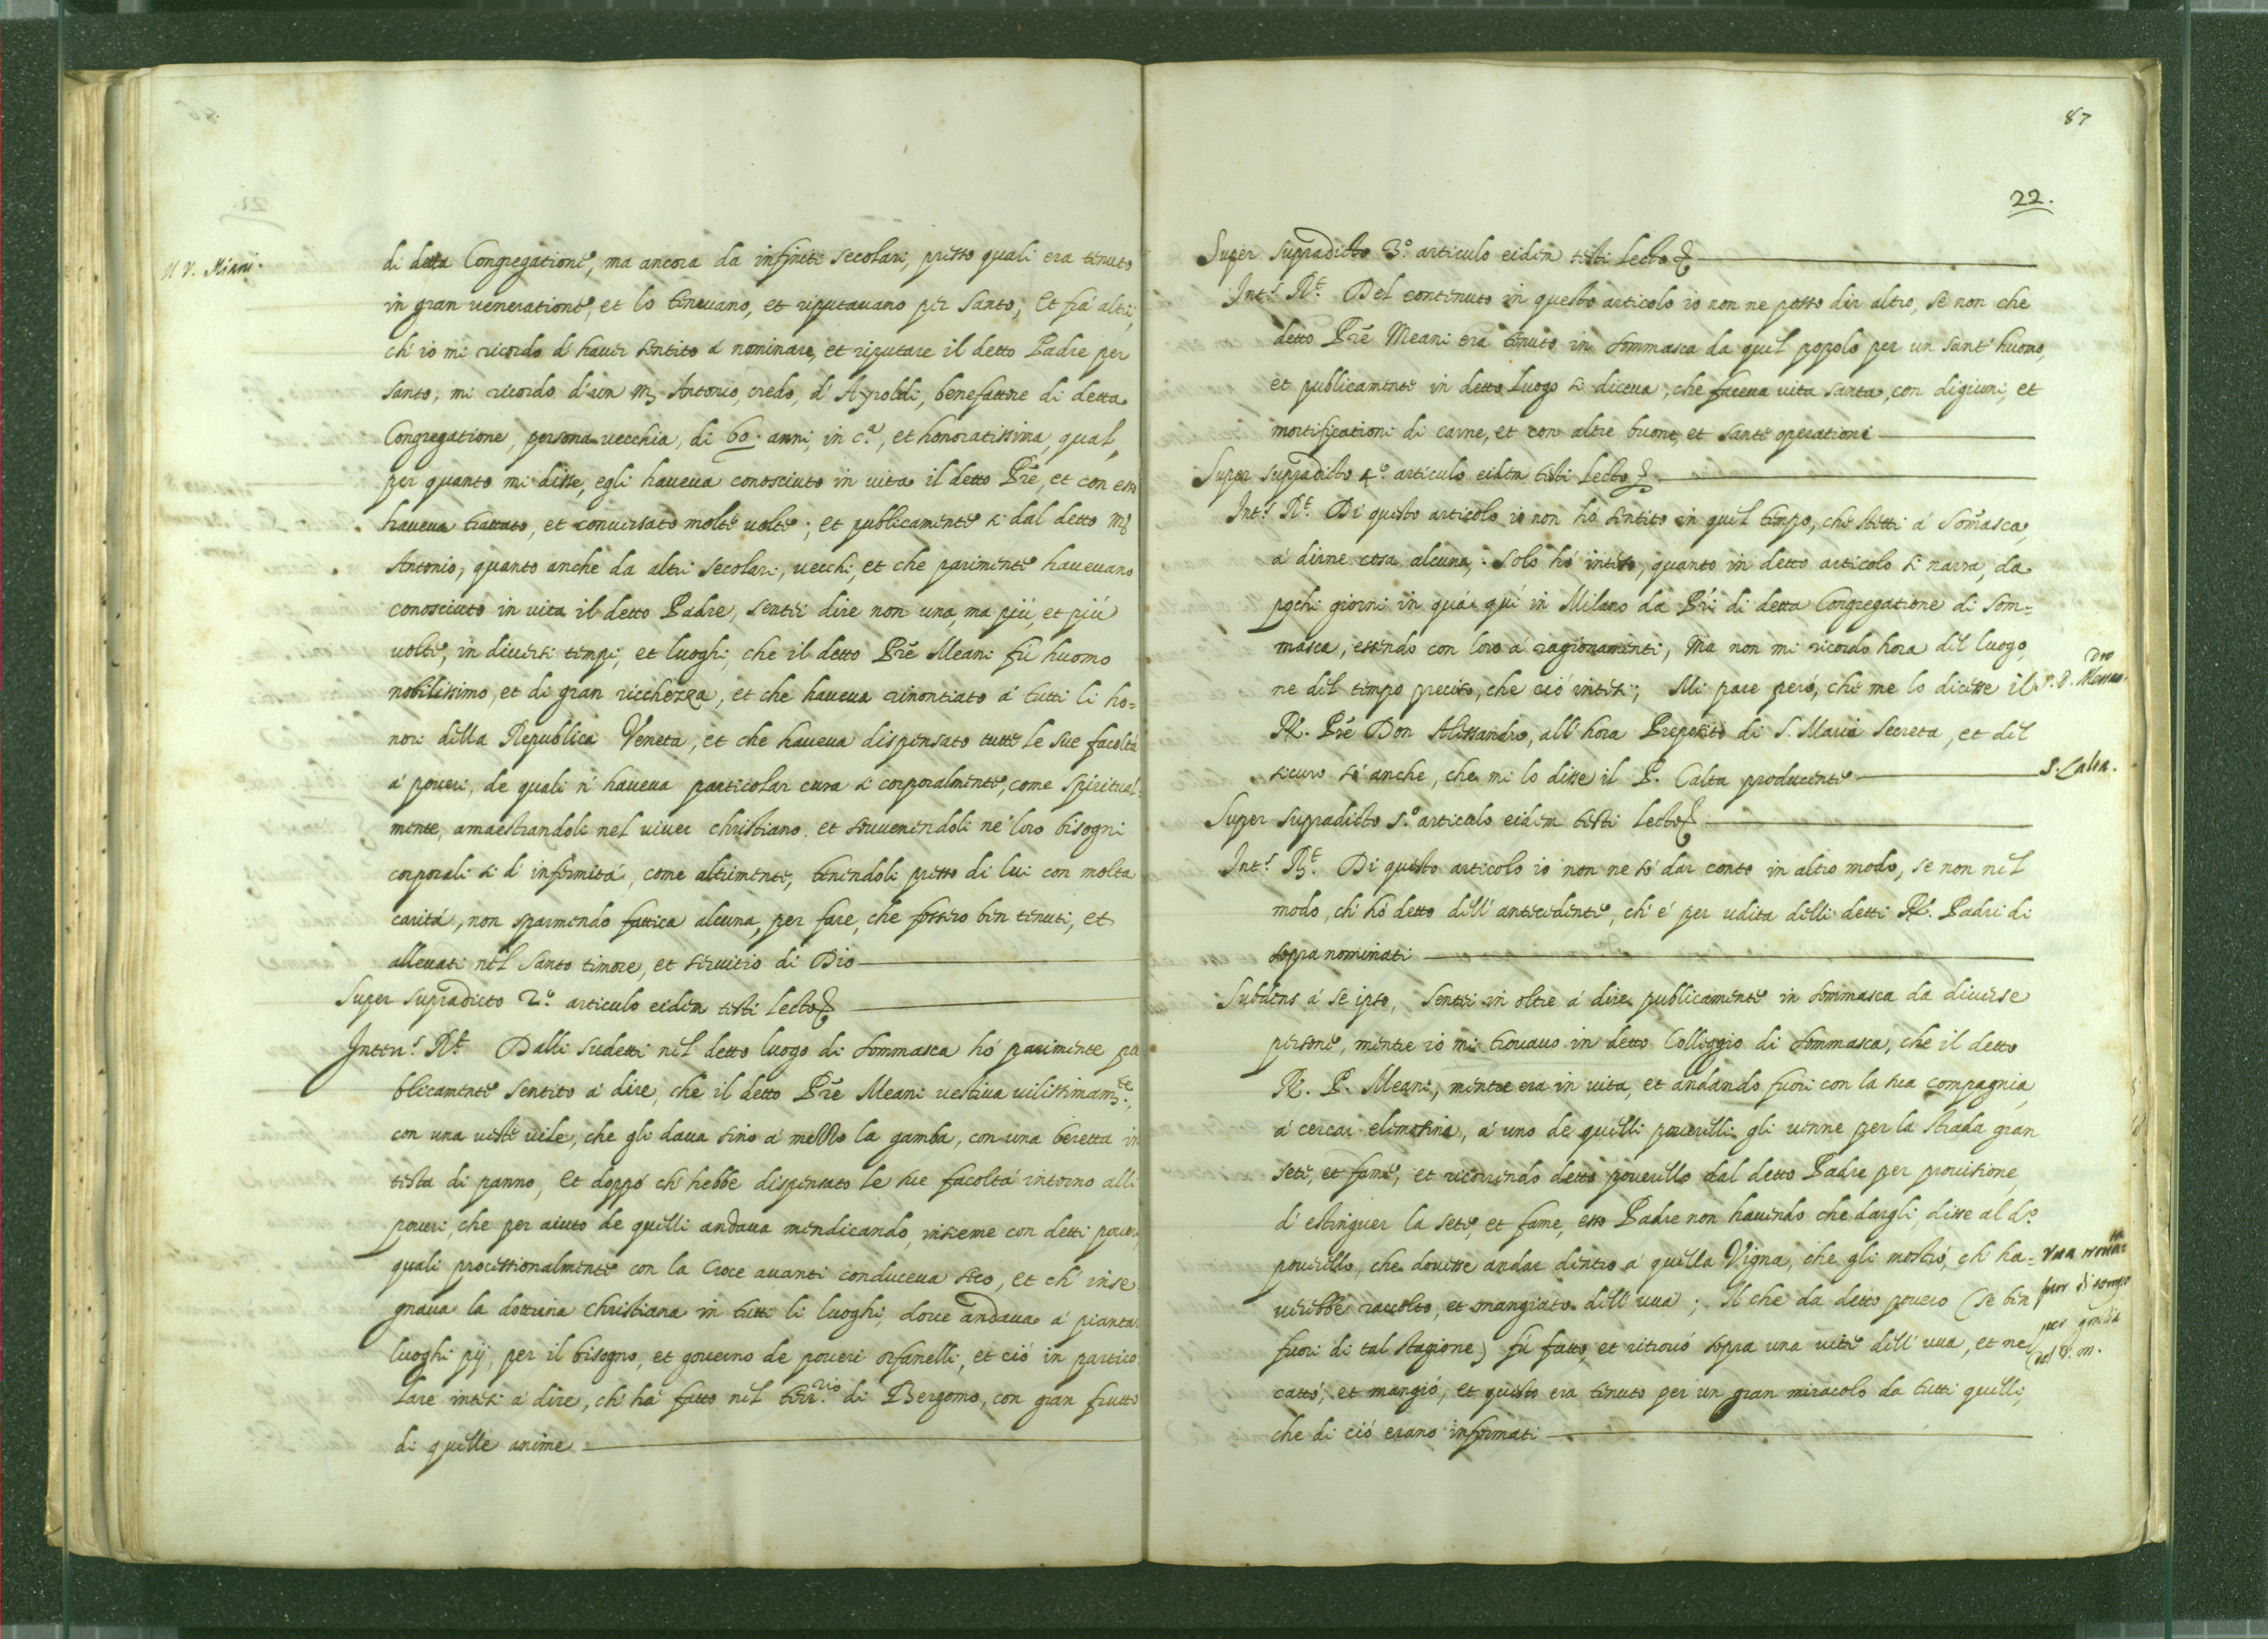 di detta Congregatione, ma ancora da infiniti secolari, presso quali era tenuto
in gran veneratione, et lo tenevano, et riputavano per Santo; Et frà altri,
ch' io mi ricordo d' haver sentito à nominare, et riputare il detto Padre per
santo, mi ricordo d' un m. Antonio, credo, d' Ayroldi, benefattore di detta
Congregatione, persona vecchia, di 60. anni in c.ª, et honoratissima, qual,
per quanto mi disse, egli haveva conosciuto in vita il detto Prẽ, et con esso
haveva trattato, et conversato molte volte; et publicamente si dal detto m.
Antonio, quanto anche da altri secolari, vecchi, et che parimente havevano
conosciuto in vita il detto Padre, sentii dire non una, ma più, et più
volte, in diversi tempi, et luoghi, che il detto Prẽ Meani fù huomo
nobilissimo, et di gran ricchezza, et che haveva rinontiato à tutti li ho=
nori della Republica Veneta, et che haveva dispensato tutte le sue facoltà
à poveri, de quali n' haveva particolar cura si corporalmente, come spiritual=
mente, amaestrandoli nel viver christiano, et sovvenendoli ne' loro bisogni
corporali si d' infermità, come altrimente, tenendoli presso di lui con molta
carità, non sparmendo fattica alcuna, per fare, che fossero ben tenuti, et
allevati nel Santo timore, et servitio di Dio
Super supradicto 2.º articulo eidem testi lecto
Interr.s R.t Dalli sudetti nel detto luogo di Sommasca hò parimente pu
blicamente sentito à dire, che il detto Prẽ Meani vestiva vilissimam.te,
con una veste vile, che gli dava sino à mezzo la gamba, con una beretta in
testa di panno, Et doppò ch' hebbe dispensato le sue facoltà intorno alli
poveri, che per aiuto de quelli andava mendicando, insieme con detti poveri,
quali processionalmente con la Croce avanti conduceva seco, et ch' inse
gnava la dottrina christiana in tutti li luoghi, dove andava à piantar
luoghi pij, per il bisogno, et governo de poveri orfanelli, et ciò in partico
lare intesi à dire, ch' hà fatto nel terr.rio di Bergomo, con gran frutto
di quelle anime
87
22.
Super supradicto 3.º articulo eidem testi lecto
Int.s R.t Del contenuto in questo articolo io non ne posso dir altro, se non che
detto Prẽ Meani era tenuto in Sommasca da quel popolo per un sant' huomo,
et publicamente in detto luogo si diceva, che faceva vita santa, con digiuni, et
mortificationi di carne, et con altre buone, et sante operationi
Super supradicto 4.º articulo eidem testi lecto
Int.s R.t Di questo articolo io non hò sentito in quel tempo, che stetti à Somasca,
à dirne cosa alcuna; solo hò inteso, quanto in detto articolo si narra, da
pochi giorni in quà quì in Milano da Pri di detta Congregatione di Som=
masca, essendo con loro à ragionamenti, Ma non mi ricordo hora del luogo,
ne del tempo preciso, che ciò intesi; Mi pare però, che me lo dicesse il
R. Prẽ Don Alessandro, all' hora Preposito di S. Maria Secreta, et del
sicuro sò anche, che mi lo disse il P. Calta producente
P. Calta.
Super supradicto 5.º articulo eidem testi lecto
Int.s R.t Di questo articolo io non ne sò dar conto in altro modo, se non nel
modo, ch' hò detto dell' antecedente, ch' è per udita delli detti R. Padri di
sopra nominati
Subdens à se ipso, Sentei in oltre à dire publicamente in Sommasca da diverse
persone, mentre io mi trovavo in detto Colleggio di Sommasca, che il detto
R. P. Meani, mentre era in vita, et andando fuori con la sua compagnia
à cercar elimosina, à uno de quelli poverelli gli venne per la strada gran
sete, et fame, et ricorrendo detto poverello dal detto Padre per provisione
d' estinguer la sete, et fame, esso Padre non havendo che dargli, disse al d.º
poverello, che dovesse andar dentro à quella Vigna, che gli mostrò, ch' ha=
verebbe raccolto, et mangiato dell' uva; Il che da detto povero (se ben
fuori di tal stagione) fù fatto, et ritrovò sopra una vite dell' uva, et ne
cattò, et mangiò, et questo era tenuto per un gran miracolo da tutti quelli,
che di ciò erano informati